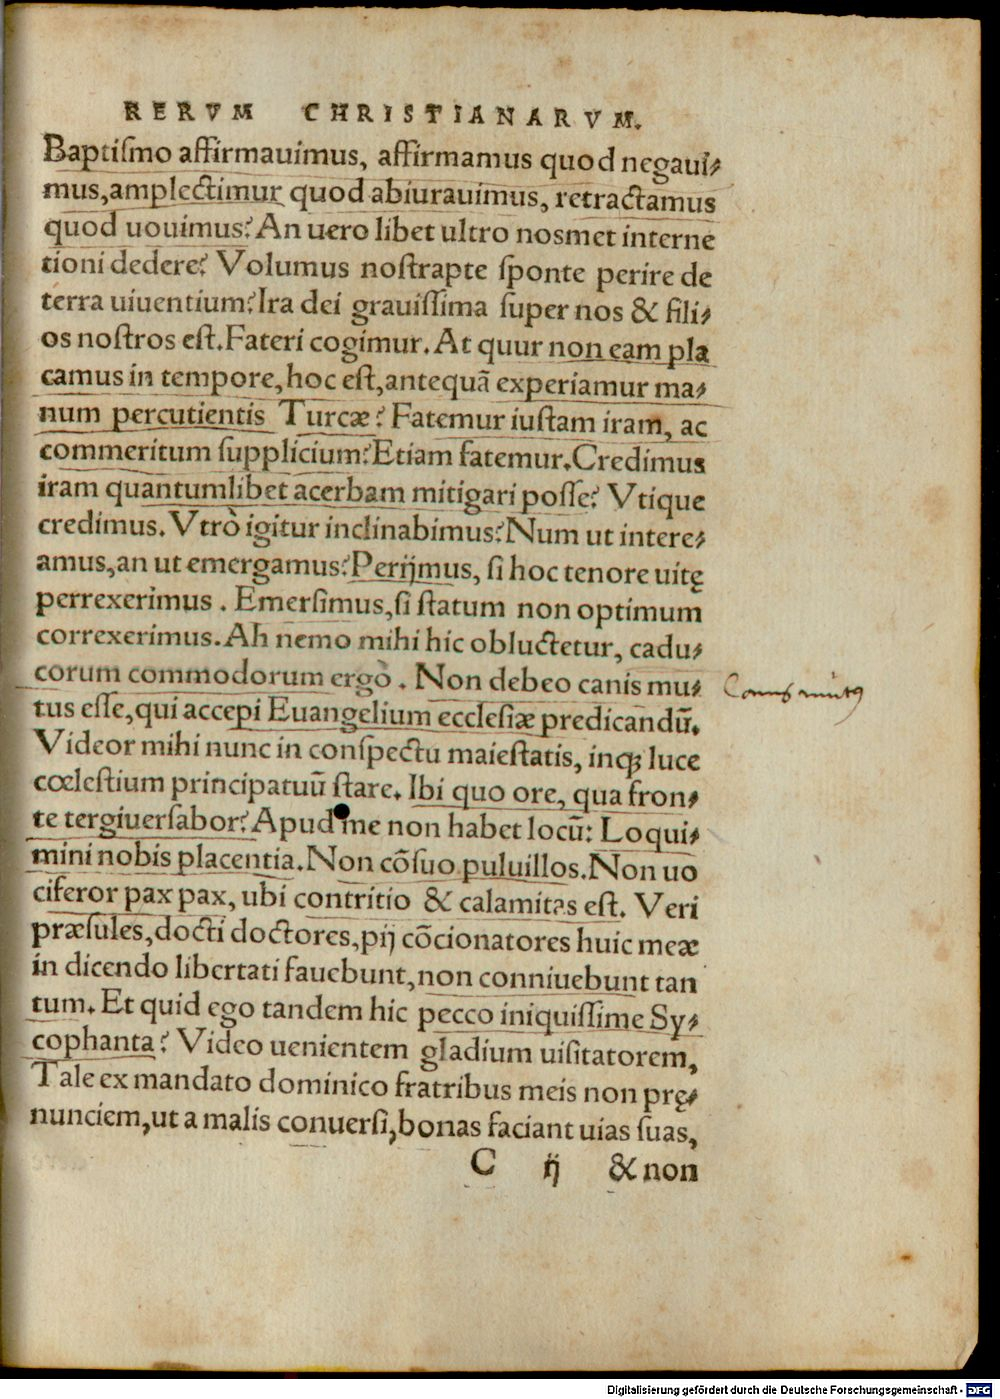 RERVM CHRISTIANARVM.
Baptiſmo affirmauimus, affirmamus quod negaui⸗
mus,amplectimur quod abiurauimus, retractamus
quod uouimus? An uero libet ultro nosmet interne
tioni dedere? Volumus noſtrapte ſponte perire de
terra uiuentium? Ira dei grauiſſima ſuper nos & fili⸗
os noſtros eſt. Fateri cogimur. At quur non eam pla
camus in tempore, hoc eſt, antequã experiamur ma⸗
num percutientis Turcæ? Fatemur iuſtam iram, ac
commeritum ſupplicium? Etiam fatemur. Credimus
iram quantumlibet acerbam mitigari poſſe? Vtique
credimus. Vtrò igitur inclinabimus? Num ut intere⸗
amus, an ut emergamus? Perijmus, ſi hoc tenore uitę
perrexerimus. Emerſimus, ſi ſtatum non optimum
correxerimus. Ah nemo mihi hic obluctetur, cadu⸗
corum commodorum ergò. Non debeo canis mu⸗
tus eſſe, qui accepi Euangelium eccleſiæ predicandũ.
Videor mihi nunc in conſpectu maieſtatis, inq; luce
cœleſtium principatuũ ſtare. Ibi quo ore, qua fron⸗
te tergiuerſabor? Apud me non habet locũ: Loqui⸗
mini nobis placentia. Non cõſuo puluillos. Non uo
ciferor pax pax, ubi contritio & calamitas eſt. Veri
præſules, docti doctores, pij cõcionatores huic meæ
in dicendo libertati fauebunt, non conniuebunt tan
tum. Et quid ego tandem hic pecco iniquiſſime Sy⸗
cophanta? Video uenientem gladium uiſitatorem,
Tale ex mandato dominico fratribus meis non prę⸗
nunciem, ut a malis conuerſi, bonas faciant uias ſuas,
C ij & non
Canis mutus
Digitalisierung gefördert durch die Deutsche Forschungsgemeinschaft - DFG